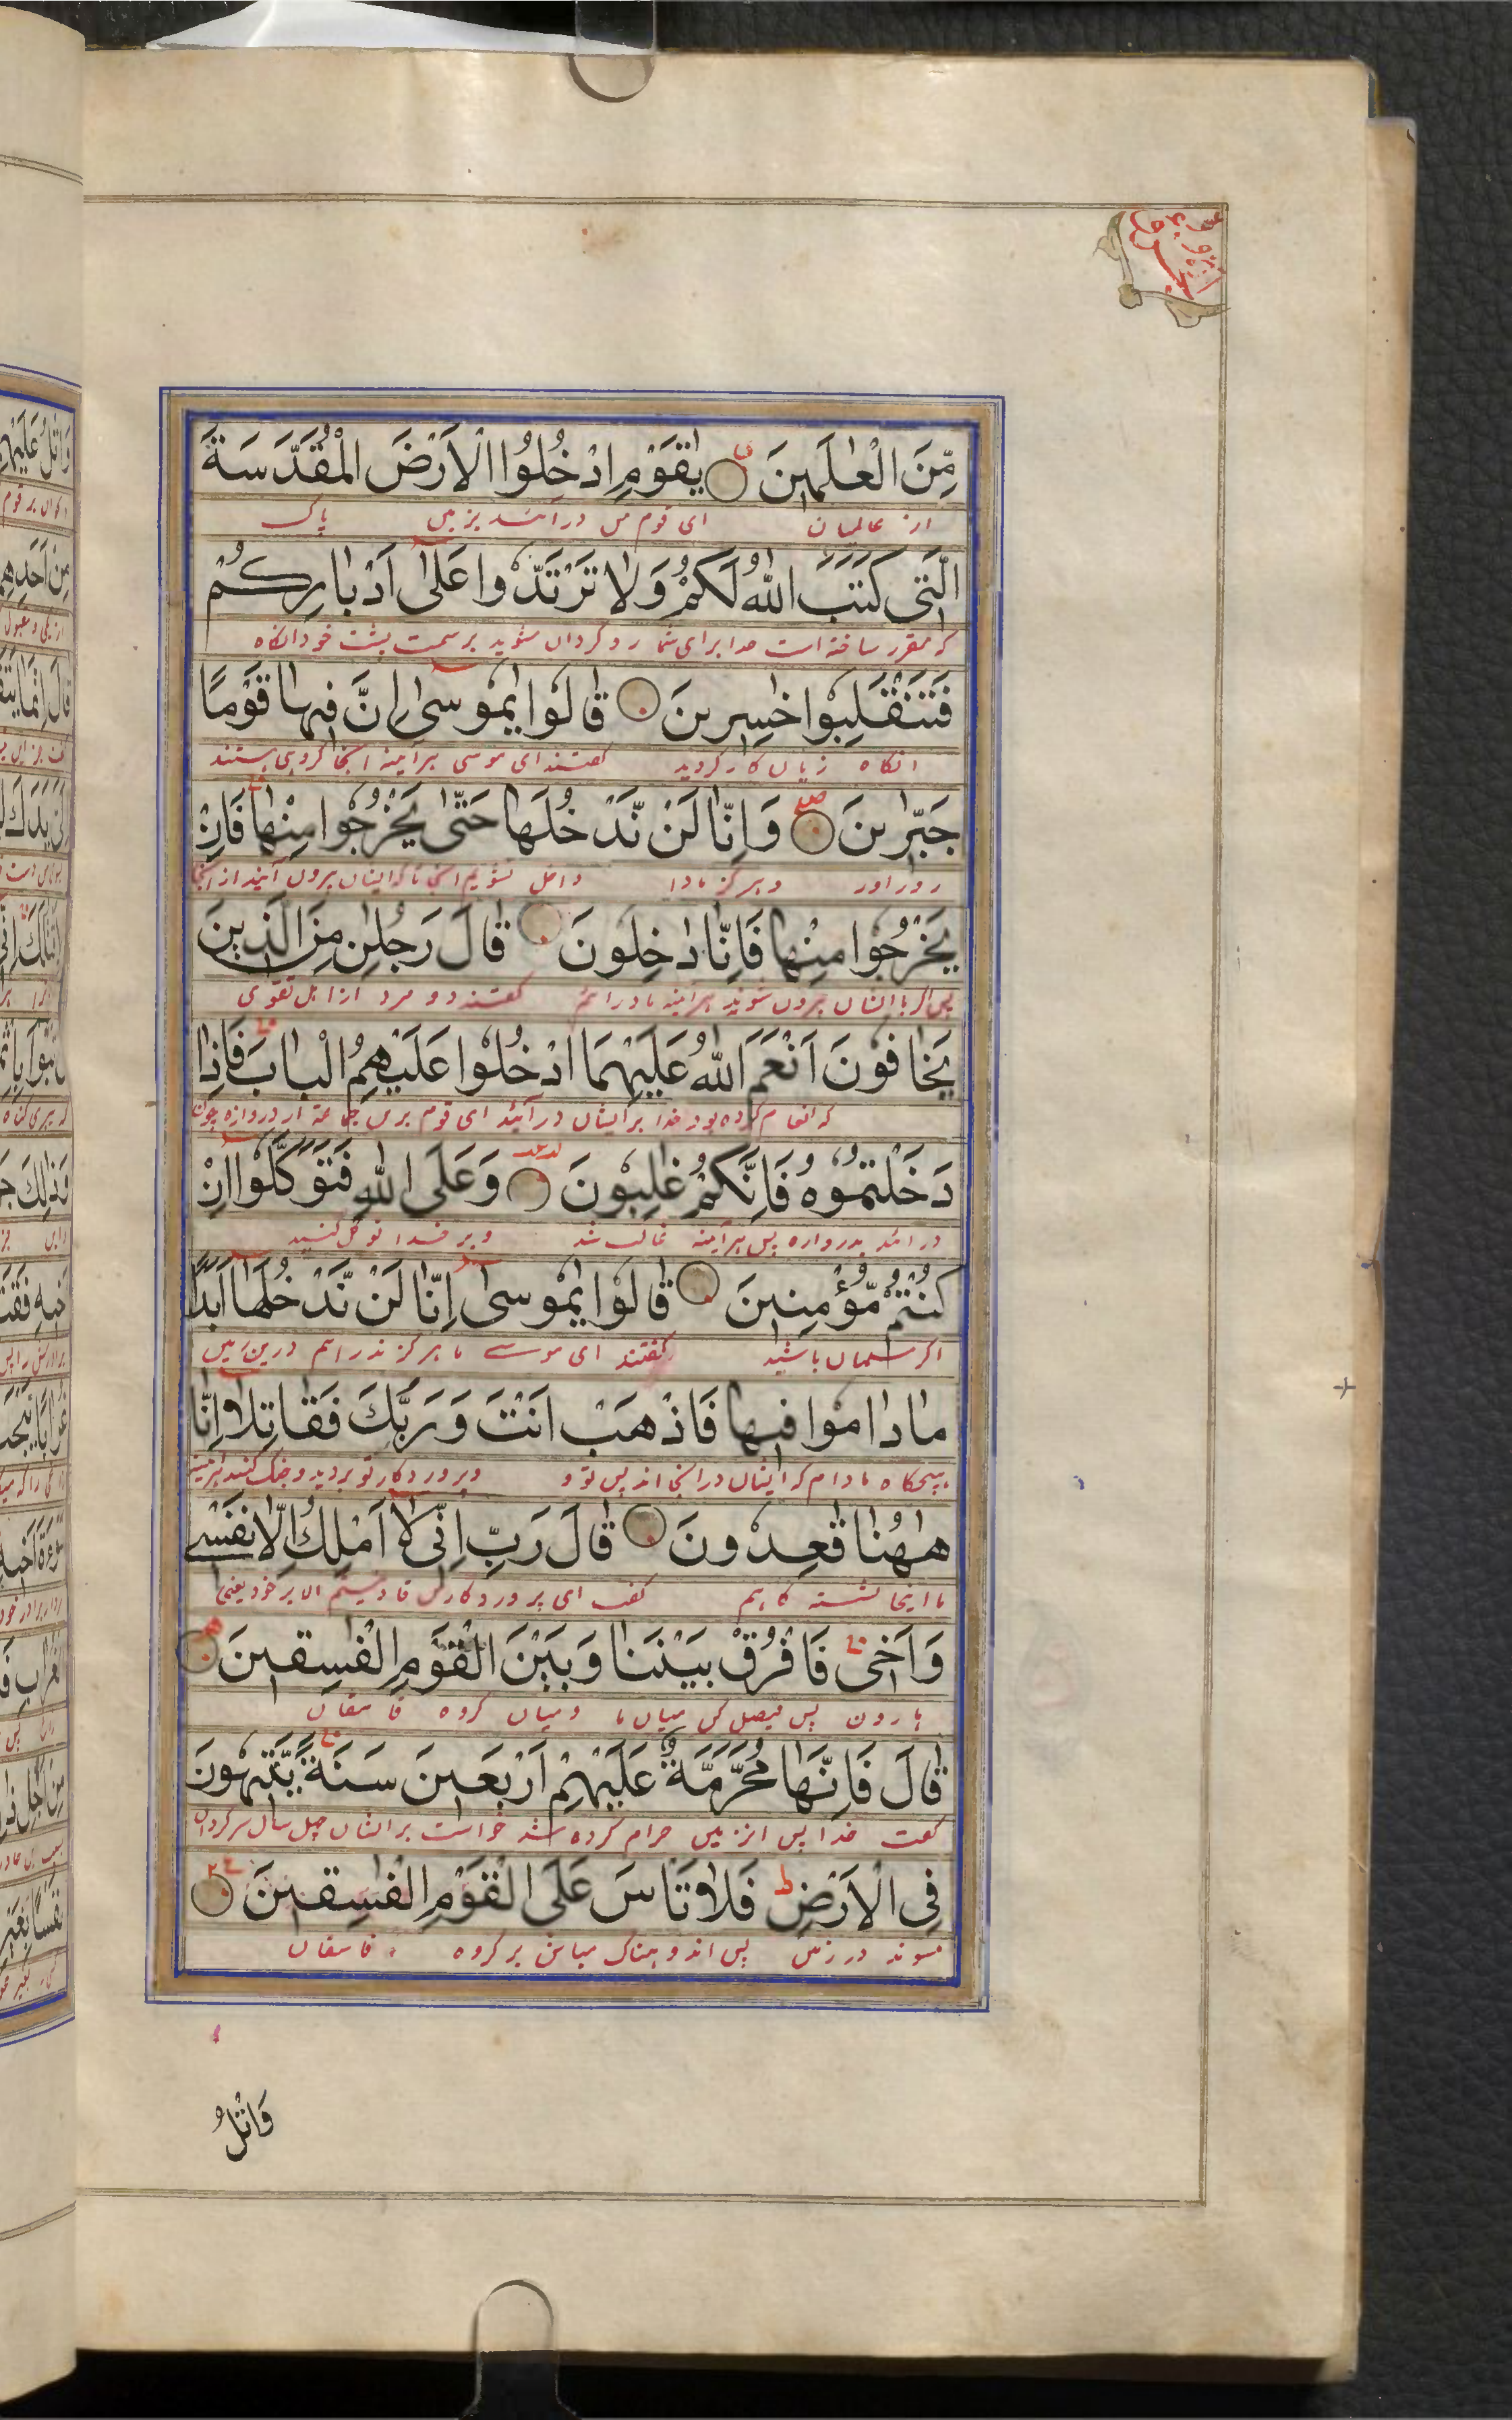 مِّنَ الْعٰلَمٖينَ يٰقَوْمِ ادْخُلُوا الْاَرْضَ الْمُقَدَّسَةَ
از عالمیان ای قوم من درآئید بزمین پاک
الَّتٖى كَتَبَ اللّٰهُ لَكُمْ وَلَا تَرْتَدُّوا عَلٰى اَدْبَارِكُمْ
که مقرر ساخته است خدا برای شما رو گردان مشوید بر سمت پشت خود انگاه
فَتَنْقَلِبُوا خٰسِرٖينَ قَالُوا يٰمُوسٰى اِنَّ فٖيهَا قَوْمًا
انگاه زیان کار گردید گفتند ای موسی هرآینه انجا گروهی هستند
جَبَّارٖينَ وَاِنَّا لَنْ نَّدْخُلَهَا حَتّٰى يَخْرُجُوا مِنْهَا فَاِنْ
زور اور و هرگز مادا داخل نشویم انجا تا که ایشان بیرون آیند از انجا
يَخْرُجُوا مِنْهَا فَاِنَّا دٰخِلُونَ قَالَ رَجُلٰنِ مِنَ الَّذٖينَ
پس اگر باایشان بیرون شوند هرآینه مادرائیم گفتند دو مرد از اهل تقوی
يَخَافُونَ اَنْعَمَ اللّٰهُ عَلَيْهِمَا ادْخُلُوا عَلَيْهِمُ الْبَابَ فَاِذَا
که انعام کرده بود خدا برایشان درآئید ای قوم برین جماعة از دروازه چون
دَخَلْتُمُوهُ فَاِنَّكُمْ غٰلِبُونَ وَعَلَى اللّٰهِ فَتَوَكَّلُوا اِنْ
درائید بدروازه پس هرآینه غالب شد و بر خدا توکل کنید
كُنْتُمْ مُّؤْمِنٖينَ قَالُوا يٰمُوسٰى اِنَّا لَنْ نَّدْخُلَهَا اَبَدًا
اگر مسلمان باشید گفتند ای موسے ما هرگز ندرائیم درین زمین
مَادَامُوا فٖيهَا فَاذْهَبْ اَنْتَ وَرَبُّكَ فَقَاتِلَا اِنَّا
هیچگاه مادام که ایشان درانجا اند پس تو و پروردکار تو بروید و جنک کنید هرآینه
هٰهُنَا قٰعِدُونَ قَالَ رَبِّ اِنّٖى لَا اَمْلِكُ اِلَّا نَفْسٖى
ما اینجا نشسته کاهیم گفت ای پروردکار من قادر نیستم الا بر خود یعنی
وَاَخٖى فَافْرُقْ بَيْنَنَا وَبَيْنَ الْقَوْمِ الْفٰسِقٖينَ
هارون پس فیصل کن میان ما و میان گروه فاسقان
قَالَ فَاِنَّهَا مُحَرَّمَةٌ عَلَيْهِمْ اَرْبَعٖينَ سَنَةً يَّتٖيهُونَ
گفت خدا پس انزمین حرام کرده شد خواست برایشان چهل سال سرکردان
فِى الْاَرْضِ فَلَا تَاْسَ عَلَى الْقَوْمِ الْفٰسِقٖينَ
میشوند در زمین پس اندوهناک مباش بر گروه فاسقان
وَاتْلُ